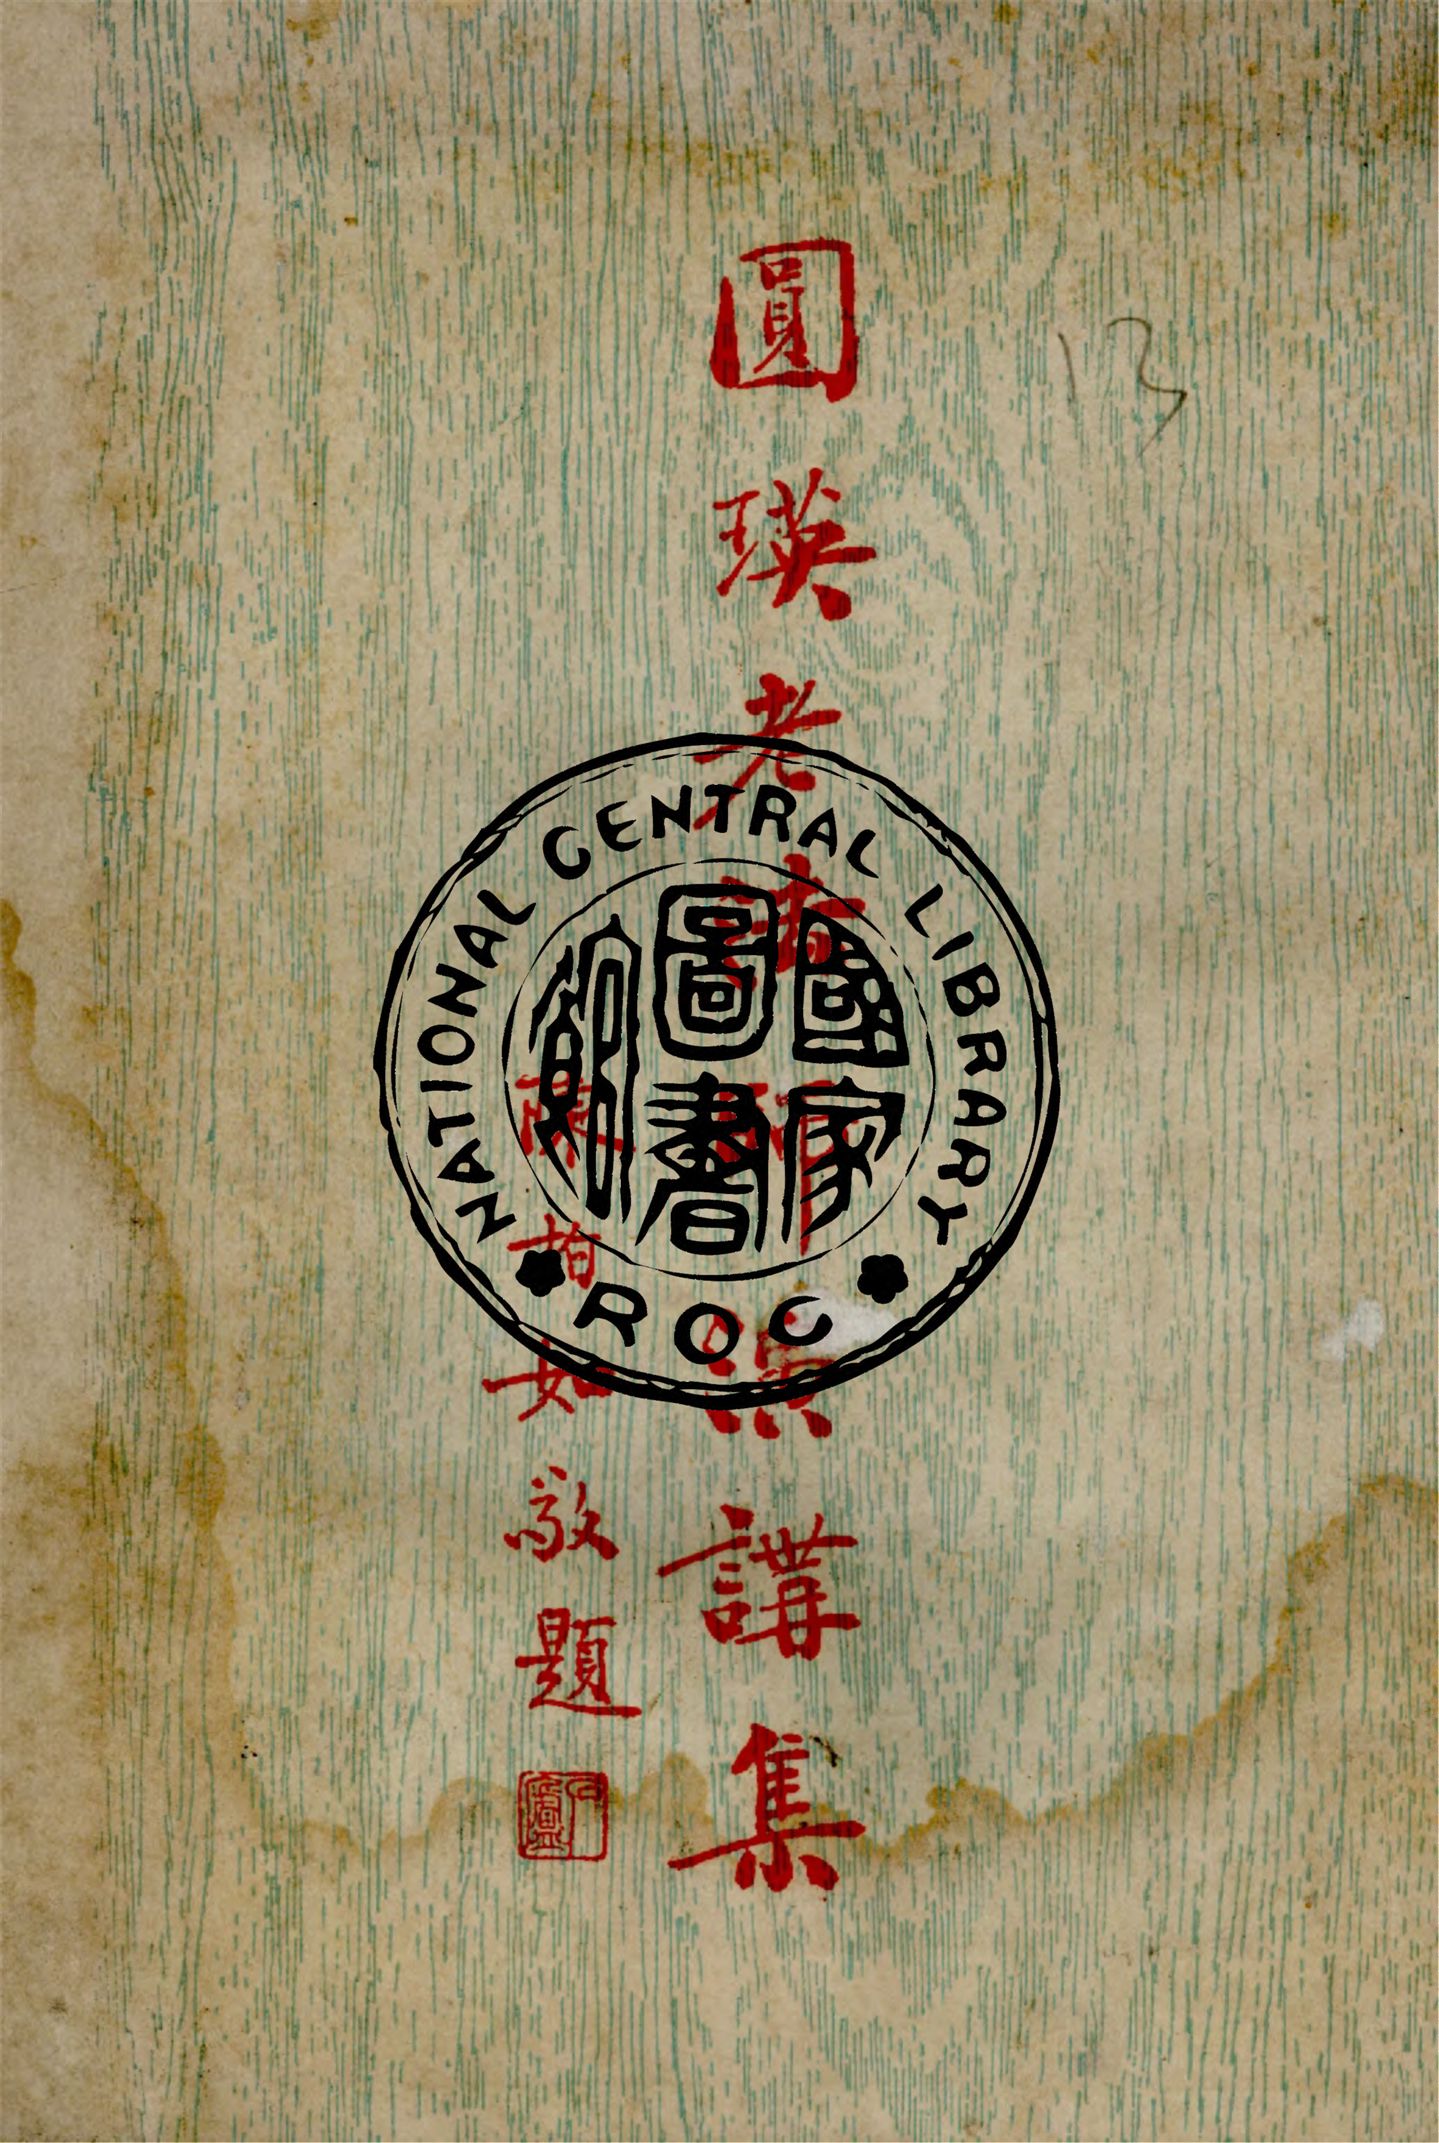 圓瑛老法師演講集
如敬題
13
NATIONAL CENTRAL LIBRARY
國家圖書館
ROC